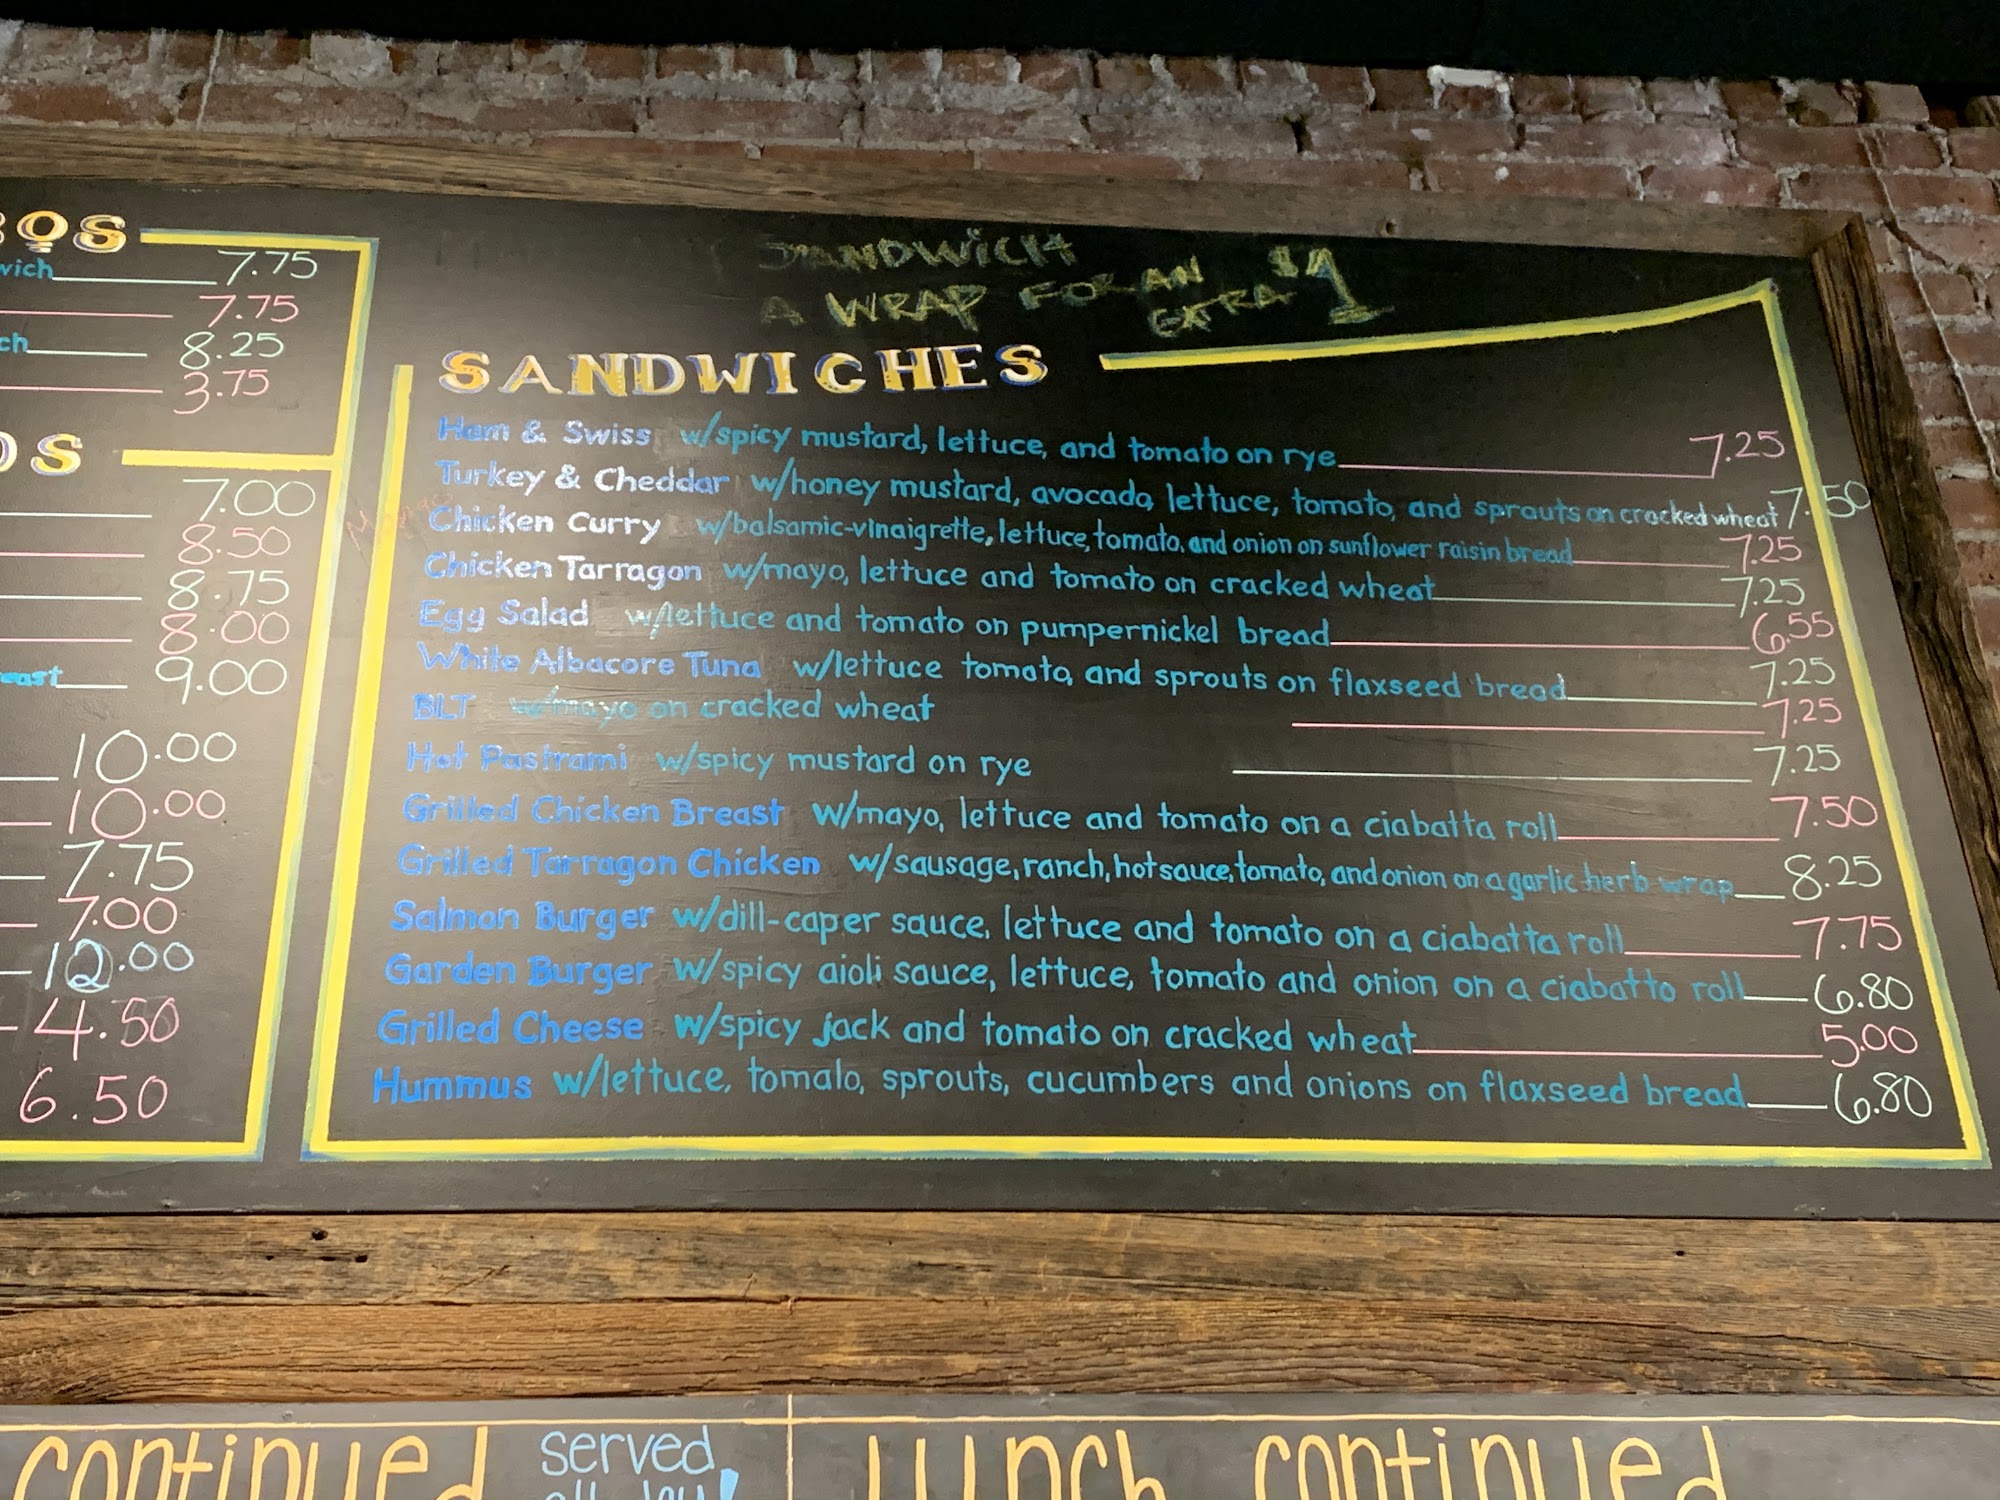 OS
wich 7.75
7.75
ch 8.25
3.75
OS
7.00
8.50
8.75
8.00
east 9.00
10.00
10.00
7.75
7.00
12.00
4.50
6.50
SANDWICH
A WRAP FOR AN EXTRA $1
SANDWICHES
Ham & Swiss w/spicy mustard, lettuce, and tomato on rye 7.25
Turkey & Cheddar w/honey mustard, avocado, lettuce, tomato, and sprouts on cracked wheat 7.50
Chicken Curry w/balsamic-vinaigrette, lettuce, tomato, and onion on sunflower raisin bread 7.25
Chicken Tarragon w/mayo, lettuce and tomato on cracked wheat 7.25
Egg Salad w/lettuce and tomato on pumpernickel bread 6.55
White Albacore Tuna w/lettuce tomato, and sprouts on flaxseed bread 7.25
BLT w/mayo on cracked wheat 7.25
Hot Pastrami w/spicy mustard on rye 7.25
Grilled Chicken Breast w/mayo, lettuce and tomato on a ciabatta roll 7.50
Grilled Tarragon Chicken w/sausage, ranch, hot sauce, tomato, and onion on a garlic herb wrap 8.25
Salmon Burger w/dill-caper sauce, lettuce and tomato on a ciabatta roll 7.75
Garden Burger w/spicy aioli sauce, lettuce, tomato and onion on a ciabatta roll 6.80
Grilled Cheese w/spicy jack and tomato on cracked wheat 5.00
Hummus w/lettuce, tomato, sprouts, cucumbers and onions on flaxseed bread 6.80
continued served
all day!
Lunch continued